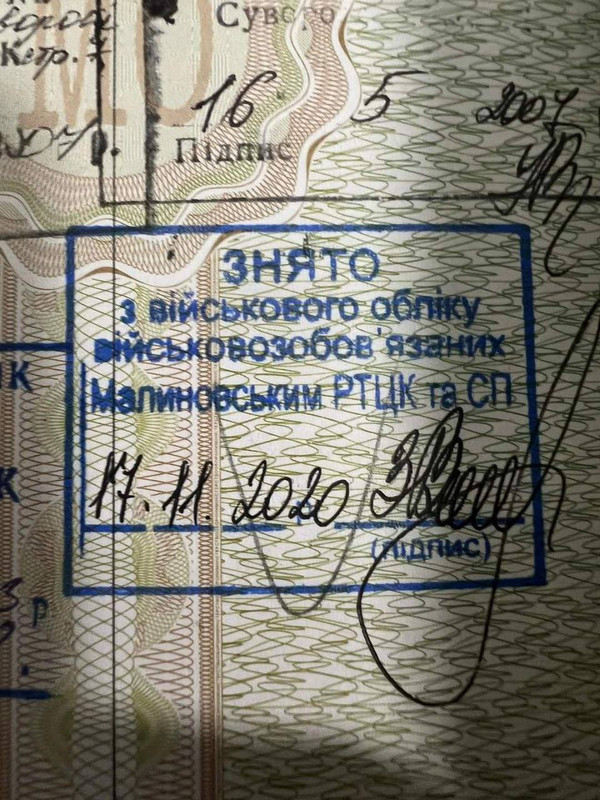 Суворо
Кстр. 7
16 5 2007
Підпис
ЗНЯТО
з військового обліку
військовозобов'язаних
Малиновським РТЦК та СП
17.11.2020
(підпис)
р